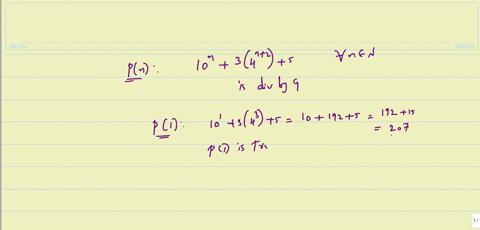 P(n): 10^n + 3(4^{n+2}) + 5 ∀ n ∈ N
is div by 9
P(1): 10^1 + 3(4^3) + 5 = 10 + 192 + 5 = 192 + 15
= 207
P(1) is Tr